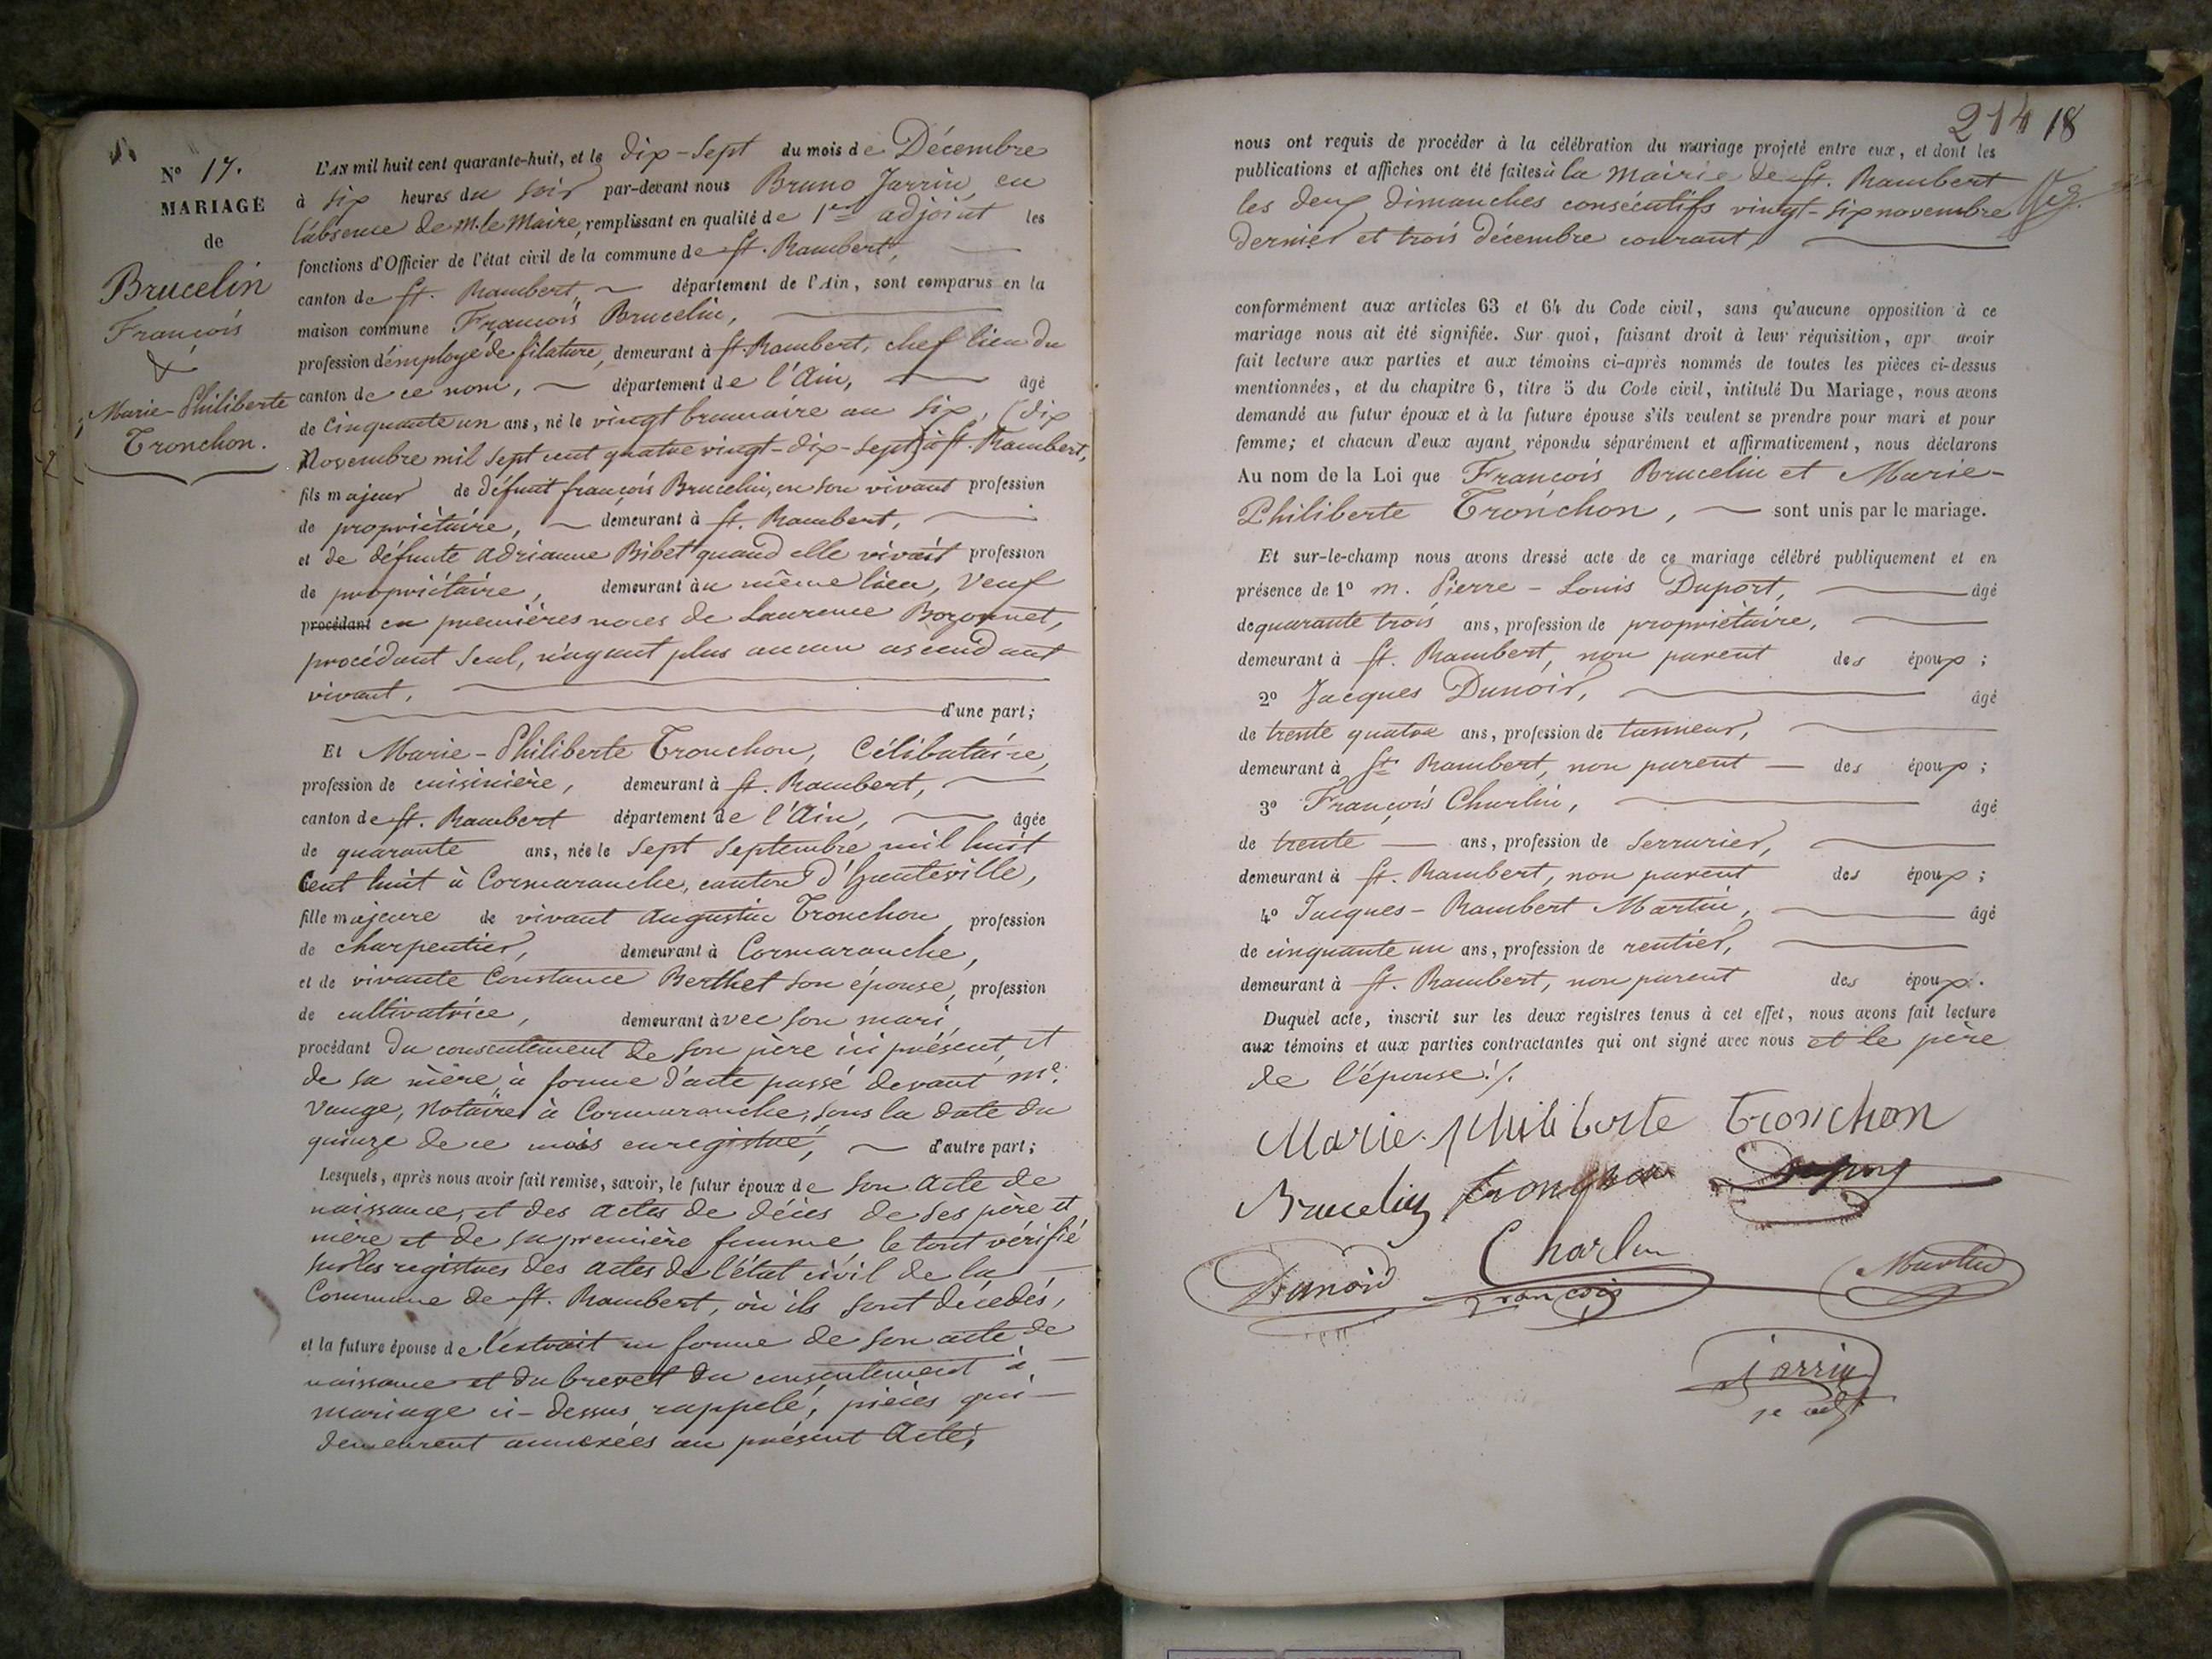 N° 17.
MARIAGE
de
Brucelin
François
&
Marie-Philiberte
Tronchon.
L'AN mil huit cent quarante-huit, et le dix-Sept du mois de Décembre
à six heures du soir par-devant nous Bruno Jarrin, en
l'absence de M. le Maire, remplissant en qualité de 1er adjoint les
fonctions d'Officier de l'état civil de la commune de St. Rambert,
canton de St. Rambert, département de l'Ain, sont comparus en la
maison commune François Brucelin,
profession d'employé de filature, demeurant à St. Rambert, chef lieu du
canton de ce nom, département de l'Ain, âgé
de Cinquante un ans, né le vingt brumaire an six, (dix
Novembre mil sept cent quatre vingt-dix-sept) à St. Rambert,
fils majeur de défunt françois Brucelin, en son vivant profession
de propriétaire, demeurant à St. Rambert,
et de défunte adrianne Bibet quand elle vivait profession
de propriétaire, demeurant au même lieu, Veuf
procédant en premières noces de Laurence Bozonnet,
procédant seul, n'ayant plus aucun ascendant
vivant,
d'une part;
Et Marie-Philiberte Tronchon, Célibataire,
profession de cuisinière, demeurant à St. Rambert,
canton de St. Rambert département de l'Ain, âgée
de quarante ans, née le sept Septembre mil huit
Cent huit à Cormaranche, canton d'hauteville,
fille majeure de vivant Augustin Tronchon, profession
de charpentier, demeurant à Cormaranche,
et de vivante Constance Berthet son épouse, profession
de cultivatrice, demeurant avec son mari,
procédant du consentement de son père ici présent, et
de sa mère, à forme d'acte passé devant Me.
Vauge, Notaire à Cormaranche, sous la date du
quinze de ce mois enregistré, d'autre part;
Lesquels, après nous avoir fait remise, savoir, le futur époux de son acte de
naissance, et des actes de décès de ses père et
mère et de sa première femme, le tout vérifié
sur les registres des actes de l'état civil de la
Commune de St. Rambert, où ils sont décédés,
et la future épouse de l'extrait en forme de son acte de
naissance et du brevet du consentement à
mariage ci-dessus rappelé, pièces qui
demeurent annexées au présent Acte;
214 18
nous ont requis de procéder à la célébration du mariage projeté entre eux, et dont les
publications et affiches ont été faites à la Mairie de St. Rambert
les deux dimanches consécutifs vingt-six novembre
dernier et trois décembre courant,
conformément aux articles 63 et 64 du Code civil, sans qu'aucune opposition à ce
mariage nous ait été signifiée. Sur quoi, faisant droit à leur réquisition, apr avoir
fait lecture aux parties et aux témoins ci-après nommés de toutes les pièces ci-dessus
mentionnées, et du chapitre 6, titre 5 du Code civil, intitulé Du Mariage, nous avons
demandé au futur époux et à la future épouse s'ils veulent se prendre pour mari et pour
femme; et chacun d'eux ayant répondu séparément et affirmativement, nous déclarons
Au nom de la Loi que François Brucelin et Marie-
Philiberte Tronchon, sont unis par le mariage.
Et sur-le-champ nous avons dressé acte de ce mariage célébré publiquement et en
présence de 1° M. Pierre-Louis Duport, âgé
de quarante trois ans, profession de propriétaire,
demeurant à St. Rambert, non parent des époux;
2° Jacques Dunoir, âgé
de trente quatre ans, profession de tanneur,
demeurant à St Rambert, non parent des époux;
3° François Charlin, âgé
de trente ans, profession de serrurier,
demeurant à St. Rambert, non parent des époux;
4° Jacques-Rambert Martin, âgé
de cinquante un ans, profession de rentier,
demeurant à St. Rambert, non parent des époux.
Duquel acte, inscrit sur les deux registres tenus à cet effet, nous avons fait lecture
aux témoins et aux parties contractantes qui ont signé avec nous et le père
de l'épouse ./.
Marie Philiberte Tronchon
Brucelin Tronchon Duport
Dunoir Charlin Martin
François
Jarrin